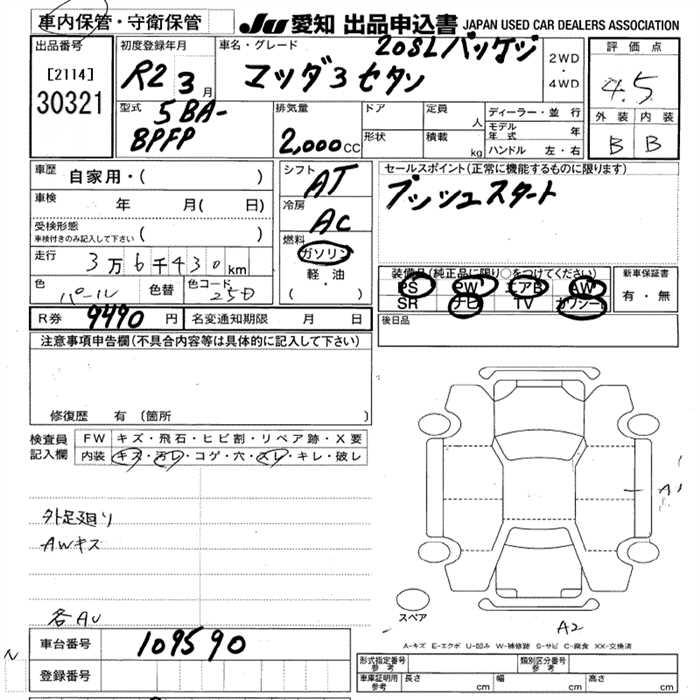 車内保管・守衛保管
JU 愛知 出品申込書 JAPAN USED CAR DEALERS ASSOCIATION
出品番号
[2114]
30321
初度登録年月
R2 3月
車名・グレード
20SLパッケジ
マツダ3 セダン
2WD
・
4WD
評価点
4.5
外装 内装
B B
型式
5BA-
BPFP
排気量
2,000cc
ドア
定員 人
形状
積載 kg
ディーラー・並行
モデル年式 年
ハンドル 左・右
車歴 自家用・( )
車検 年 月( 日)
受検形態
車検付きのみ記入して下さい ( )
走行 3万6千430km
色 パール 色替 色コード 25D
シフト
AT
冷房
AC
燃料
ガソリン
軽・油
( )
セールスポイント(正常に機能するものに限ります)
プッシュスタート
装備品(純正品に限り○をつけてください)
PS PW エアB AW
SR ナビ TV カワシート
新車保証書
有・無
R券 9490 円 名変通知期限 月 日
後日品
注意事項申告欄(不具合内容等は具体的に記入して下さい)
修復歴 有(箇所 )
検査員
記入欄
FW キズ・飛石・ヒビ割・リペア跡・X要
内装 キズ・汚レ・コゲ・穴・スレ・キレ・破レ
外足廻り
AWキズ
各AU
A1
スペア
A2
A-キズ E-エクボ U-凹み W-補修跡 S-サビ C-腐食 XX-交換済
車台番号 109590
登録番号
形式指定番号
参考
類別区分番号
参考
車庫証明用
参考
長さ cm 幅 cm 高さ cm